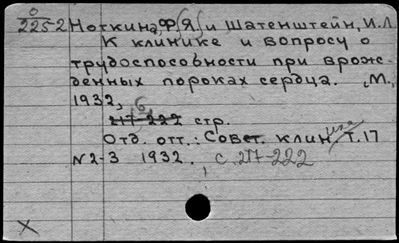 0
225-2 Ноткина, Ф.(Я.) и Шатенштейн, И.Л.
К клинике и вопросу о
трудоспособности при врож-
денных пороках сердца. М.,
1932,
6
217-222 стр.
Отд. отт.: Совет. клиника, т.17
N2-3 1932. с. 217-222
X